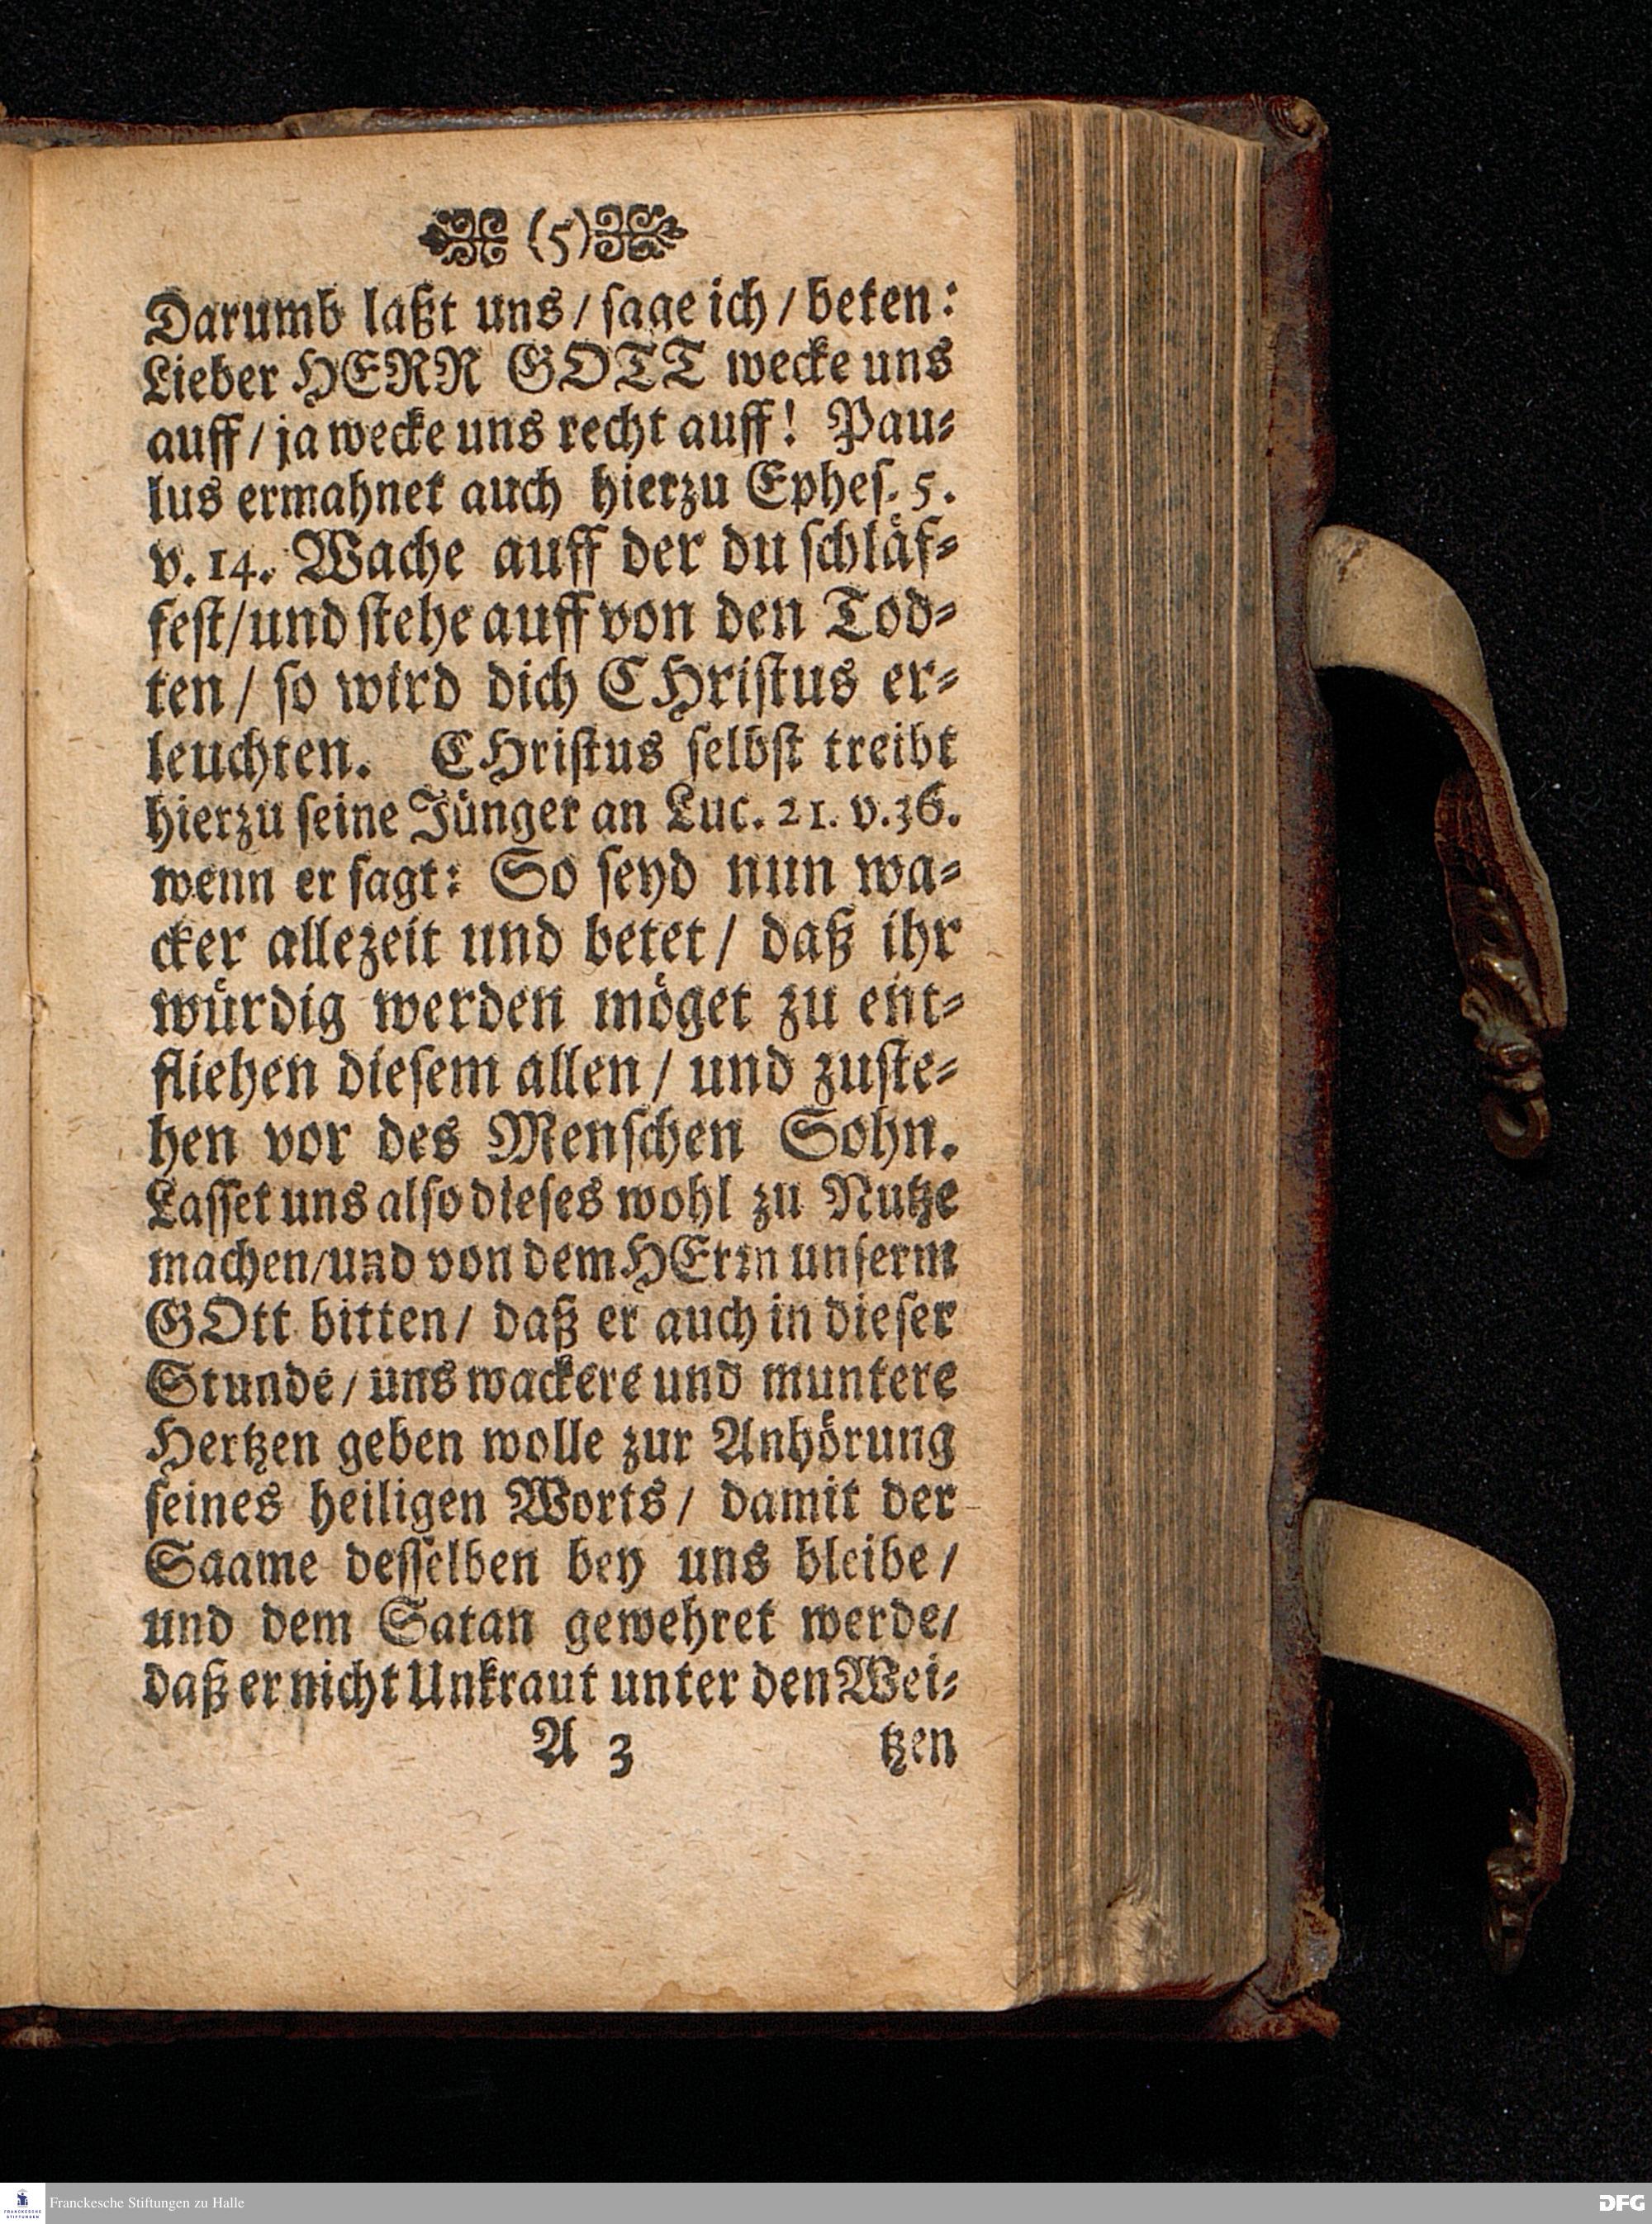 (5)
Darumb laßt uns/ ſage ich/ beten:
Lieber HERR GOTT wecke uns
auff/ ja wecke uns recht auff! Pau⸗
lus ermahnet auch hierzu Epheſ. 5.
v. 14. Wache auff der du ſchläf⸗
feſt/ und ſtehe auff von den Tod⸗
ten/ ſo wird dich CHriſtus er⸗
leuchten. CHriſtus ſelbſt treibt
hierzu ſeine Jünger an Luc. 21. v. 36.
wenn er ſagt: So ſeyd nun wa⸗
cker allezeit und betet/ daß ihr
würdig werden möget zu ent⸗
fliehen dieſem allen/ und zuſte⸗
hen vor des Menſchen Sohn.
Laſſet uns alſo dieſes wohl zu Nutze
machen/ und von dem HErꝛn unſerm
GOtt bitten/ daß er auch in dieſer
Stunde/ uns wackere und muntere
Hertzen geben wolle zur Anhörung
ſeines heiligen Worts/ damit der
Saame deſſelben bey uns bleibe/
und dem Satan gewehret werde/
daß er nicht Unkraut unter den Wei⸗
A 3 tzen
Franckesche Stiftungen zu Halle
DFG
FRANCKESCHE
STIFTUNGEN